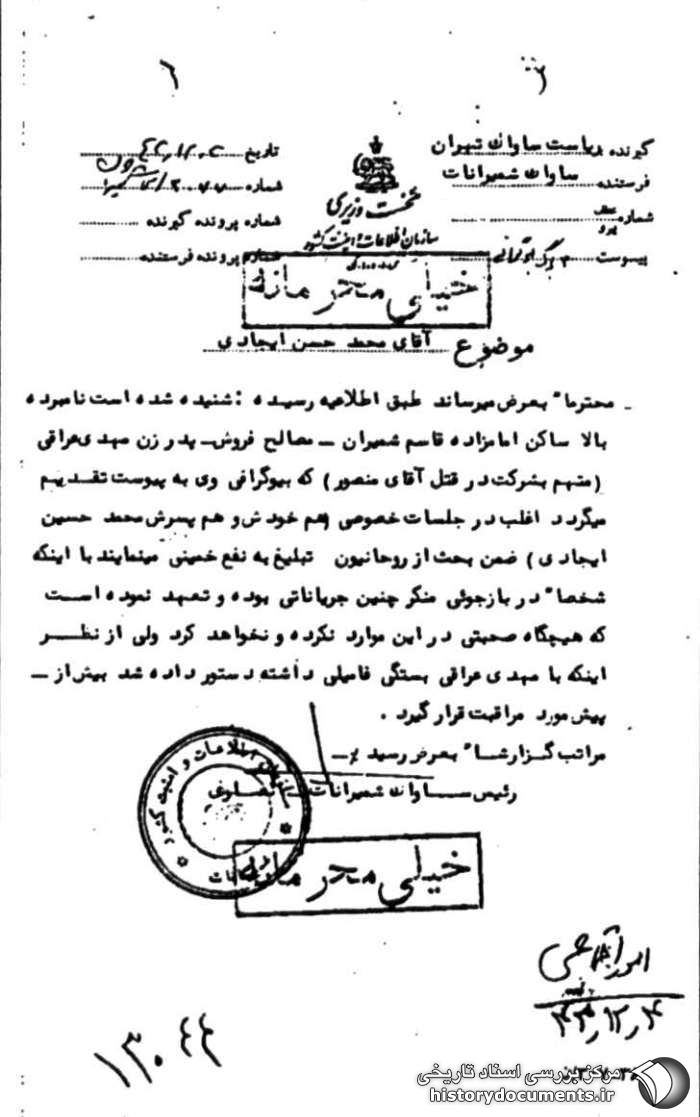 ۲ ۶
گیرنده ریاست ساواک تهران
فرستنده ساواک شمیرانات
شماره
پیوست
نخست وزیری
سازمان اطلاعات و امنیت کشور
تاریخ
شماره
شماره پرونده گیرنده
شماره پرونده فرستنده
خیلی محرمانه
موضوع آقای محمد حسن ایجادی
محترما" بعرض میرساند طبق اطلاعیه رسیده : شنیده شده است نامبرده
بالا ساکن امامزاده قاسم شمیران ـ مصالح فروش ـ پدر زن مهدی عراقی
(متهم بشرکت در قتل آقای منصور) که بیوگرافی وی به پیوست تقدیم
میگردد اغلب در جلسات خصوصی (هم خودش و هم پسرش محمد حسین
ایجادی) ضمن بحث از روحانیون تبلیغ به نفع خمینی مینمایند با اینکه
شخصا" در بازجوئی منکر چنین جریاناتی بوده و تعهد نموده است
که هیچگاه صحبتی در این موارد نکرده و نخواهد کرد ولی از نظر
اینکه با مهدی عراقی بستگی فامیلی داشته دستور داده شد بیش از ـ
پیش مورد مراقبت قرار گیرد .
مراتب گزارشا" بعرض رسید
رئیس ساواک شمیرانات ـ
سازمان اطلاعات و امنیت کشور
خیلی محرمانه
۴۳,۱۲,۴
۱۳۰۴۴
مرکز بررسی اسناد تاریخی
historydocuments.ir